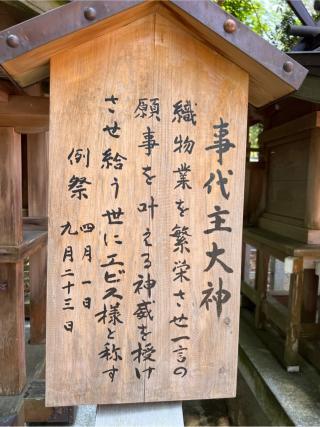 事代主大神
織物業を繁栄させ一言の
願事を叶える神威を授け
させ給う世にエビス様と称す
例祭 四月一日
九月二十三日